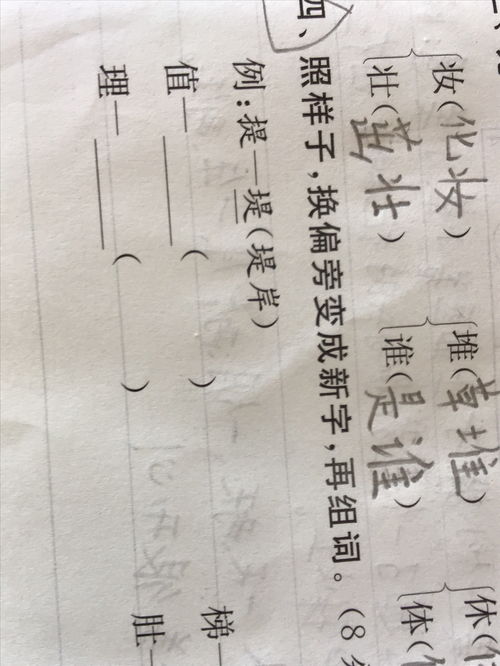 妆(化妆) 堆(草堆) 休(
壮(茁壮) 谁(是谁) 体(
四、照样子，换偏旁变成新字，再组词。(8
例：提—堤(堤岸)
值—____( ) 梯—
理—____( ) 肚—